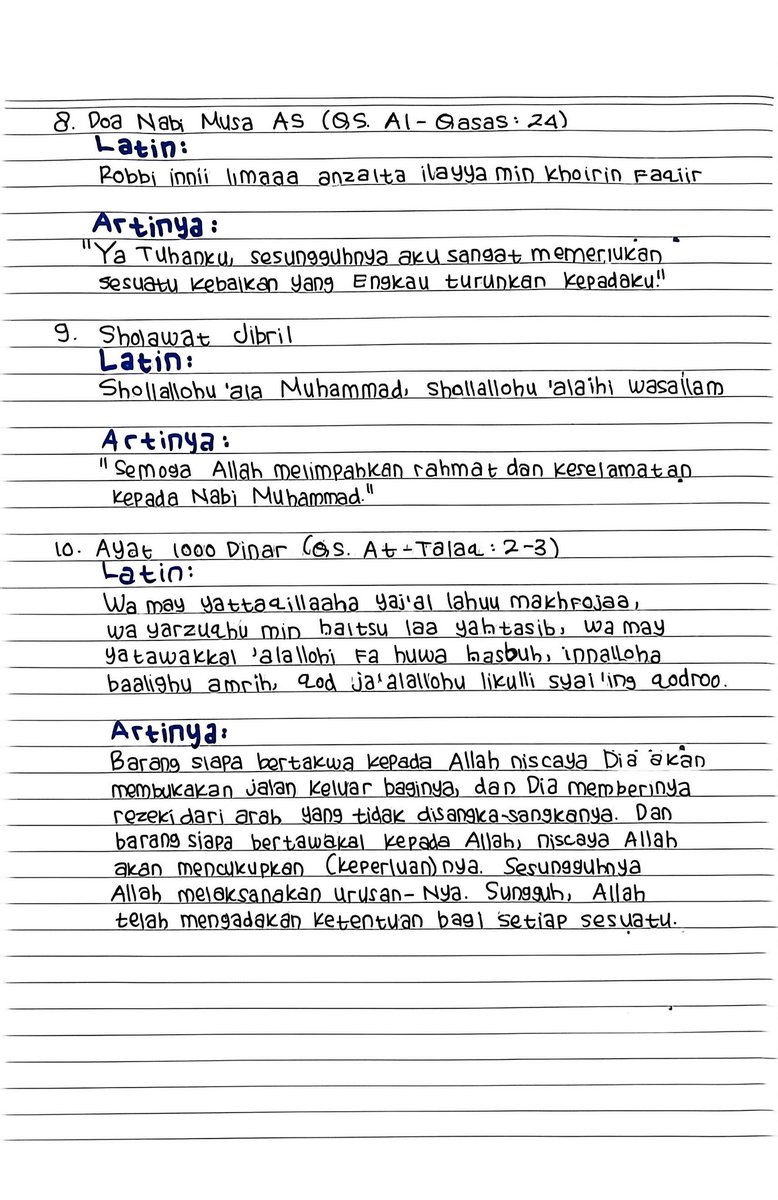 8. Doa Nabi Musa AS (QS. Al-Qasas: 24)
Latin:
Robbi innii limaaa anzalta ilayya min khoirin Faqiir
Artinya:
"Ya Tuhanku, sesungguhnya aku sangat memerlukan
sesuatu kebaikan yang Engkau turunkan kepadaku."
9. Sholawat Jibril
Latin:
Shollallohu 'ala Muhammad, shollallohu 'alaihi wasallam
Artinya:
"Semoga Allah melimpahkan rahmat dan keselamatan
kepada Nabi Muhammad."
10. Ayat 1000 Dinar (QS. At-Talaq: 2-3)
Latin:
Wa may yattaqillaaha yaj'al lahuu makhrojaa,
wa yarzuqhu min haitsu laa yahtasib, wa may
yatawakkal 'alallohi Fa huwa hasbuh, innalloha
baalighu amrih, qod ja'alallohu likulli syai'ing qodroo.
Artinya:
Barang siapa bertakwa kepada Allah niscaya Dia akan
membukakan jalan keluar baginya, dan Dia memberinya
rezeki dari arah yang tidak disangka-sangkanya. Dan
barang siapa bertawakal kepada Allah, niscaya Allah
akan mencukupkan (keperluan)nya. Sesungguhnya
Allah melaksanakan urusan-Nya. Sungguh, Allah
telah mengadakan ketentuan bagi setiap sesuatu.